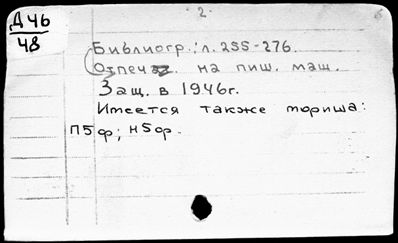 - 2 -
Д 46
48
Библиогр.: л. 255-276.
Отпеч. на пиш. маш.
Защ. в 1946г.
Имеется также
П5ф; Н5ф.